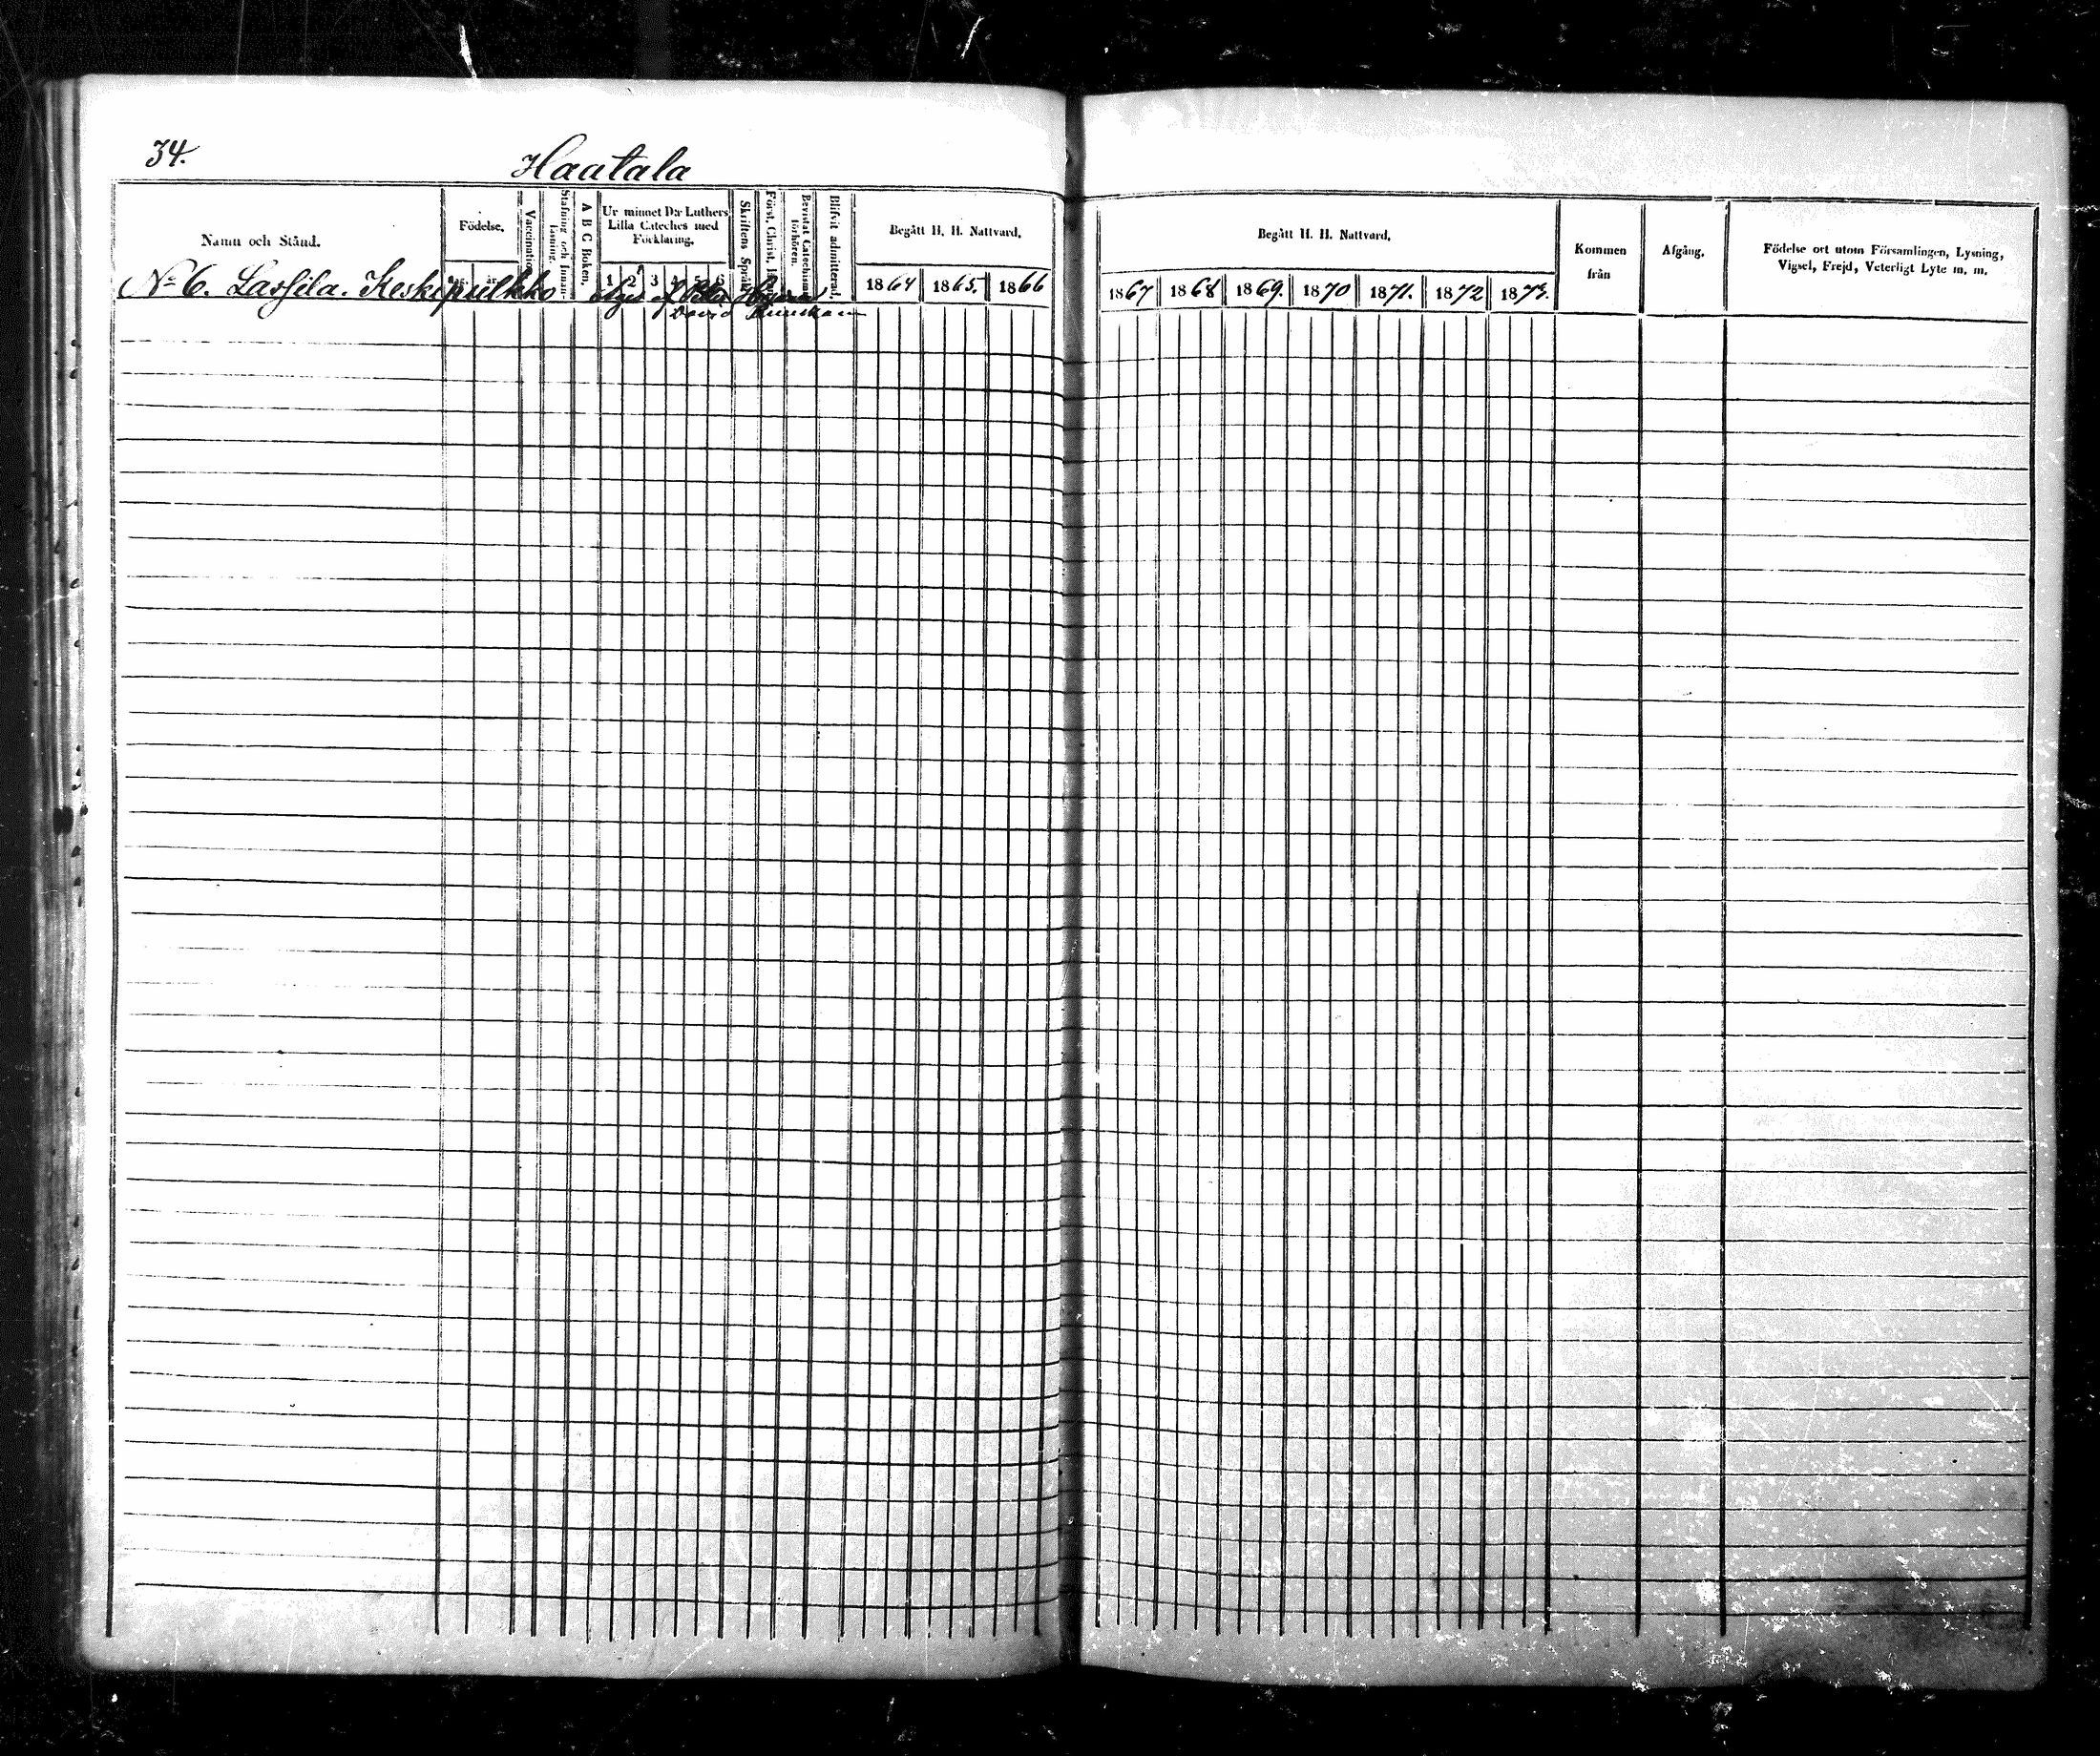 34.
Haatala
Namn och Stånd.
Födelse.
Vaccination
Stafning och Innan-
läsning.
A B C Boken.
Ur minnet D:r Luthers
Lilla Cateches med
Förklaring.
1 2 3 4 5 6
Skriftens Språk
Först. Christ.
Bevistat Catechismi
förhören.
Blifvit admitterad.
Begått H. H. Nattvard.
1864 1865. 1866
N:o 6. Lassila. Keskipulkko eges af
David
Begått H. H. Nattvard.
1867 1868 1869. 1870 1871. 1872 1873.
Kommen
från
Afgång.
Födelse ort utom Församlingen, Lysning,
Vigsel, Frejd, Veterligt Lyte m. m.